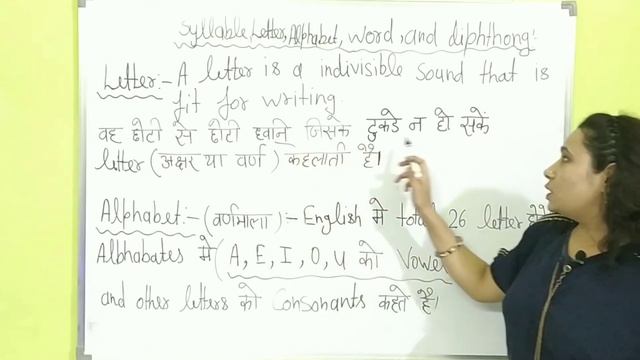 Syllable Letter, Alphabet, word, and diphthong:
Letter:- A letter is a indivisible sound that is
fit for writing.
वह छोटी से छोटी ध्वनि जिसके टुकडे न हो सकें
letter (अक्षर या वर्ण) कहलाती है।
Alphabet:- (वर्णमाला) :- English मे total 26 letter
Albhabates मे (A, E, I, O, U को Vowel
and other letters को Consonants कहते है।